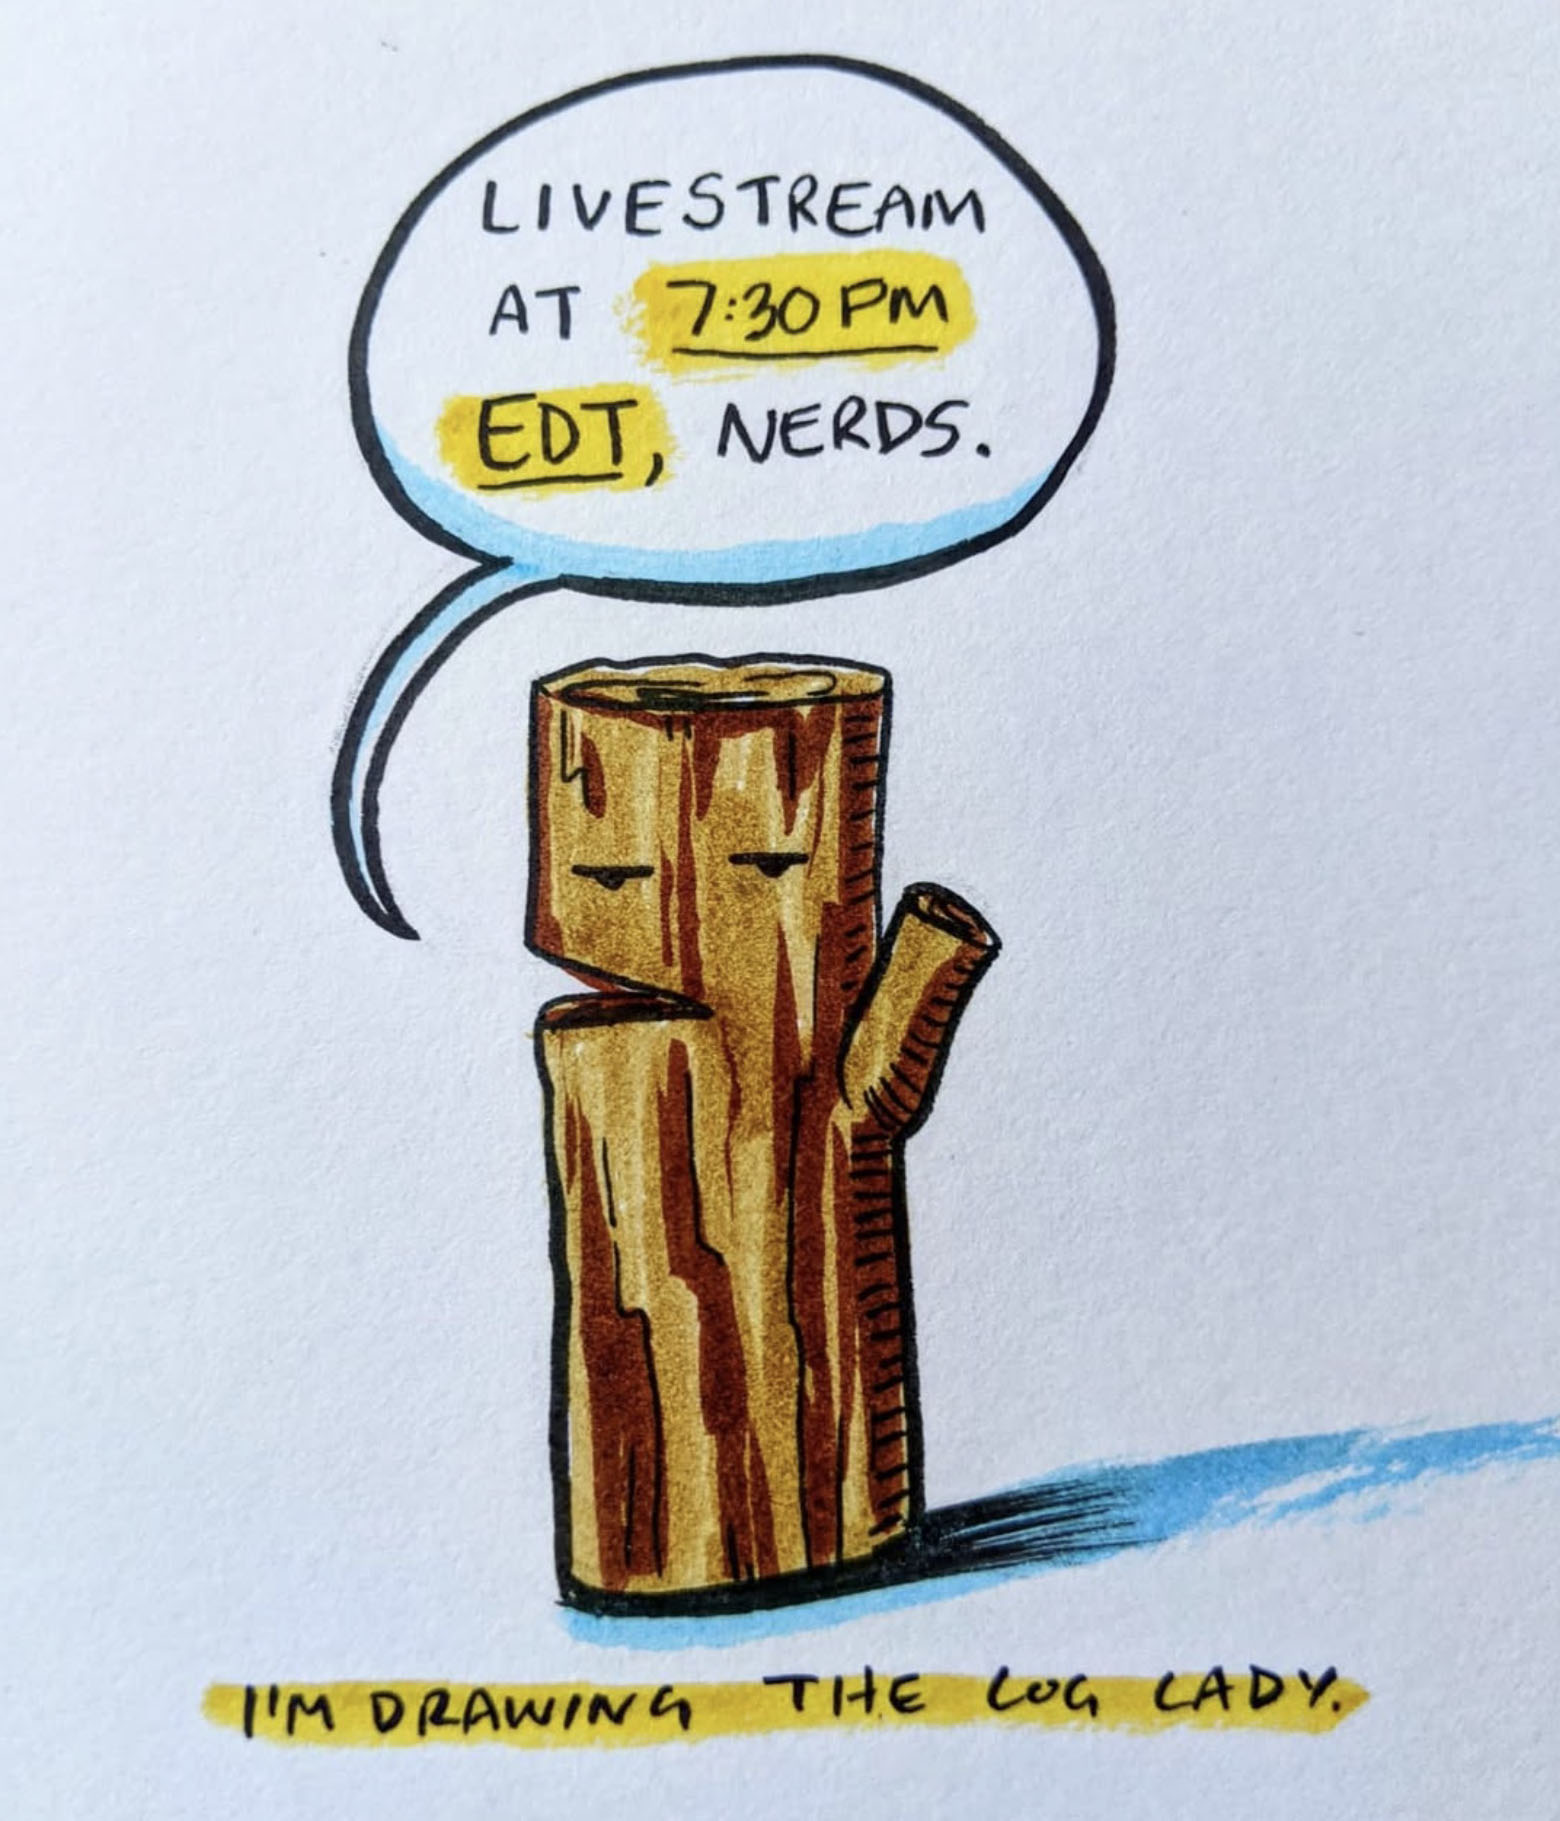 LIVESTREAM
AT 7:30 PM
EDT, NERDS.
I'M DRAWING THE LOG LADY.